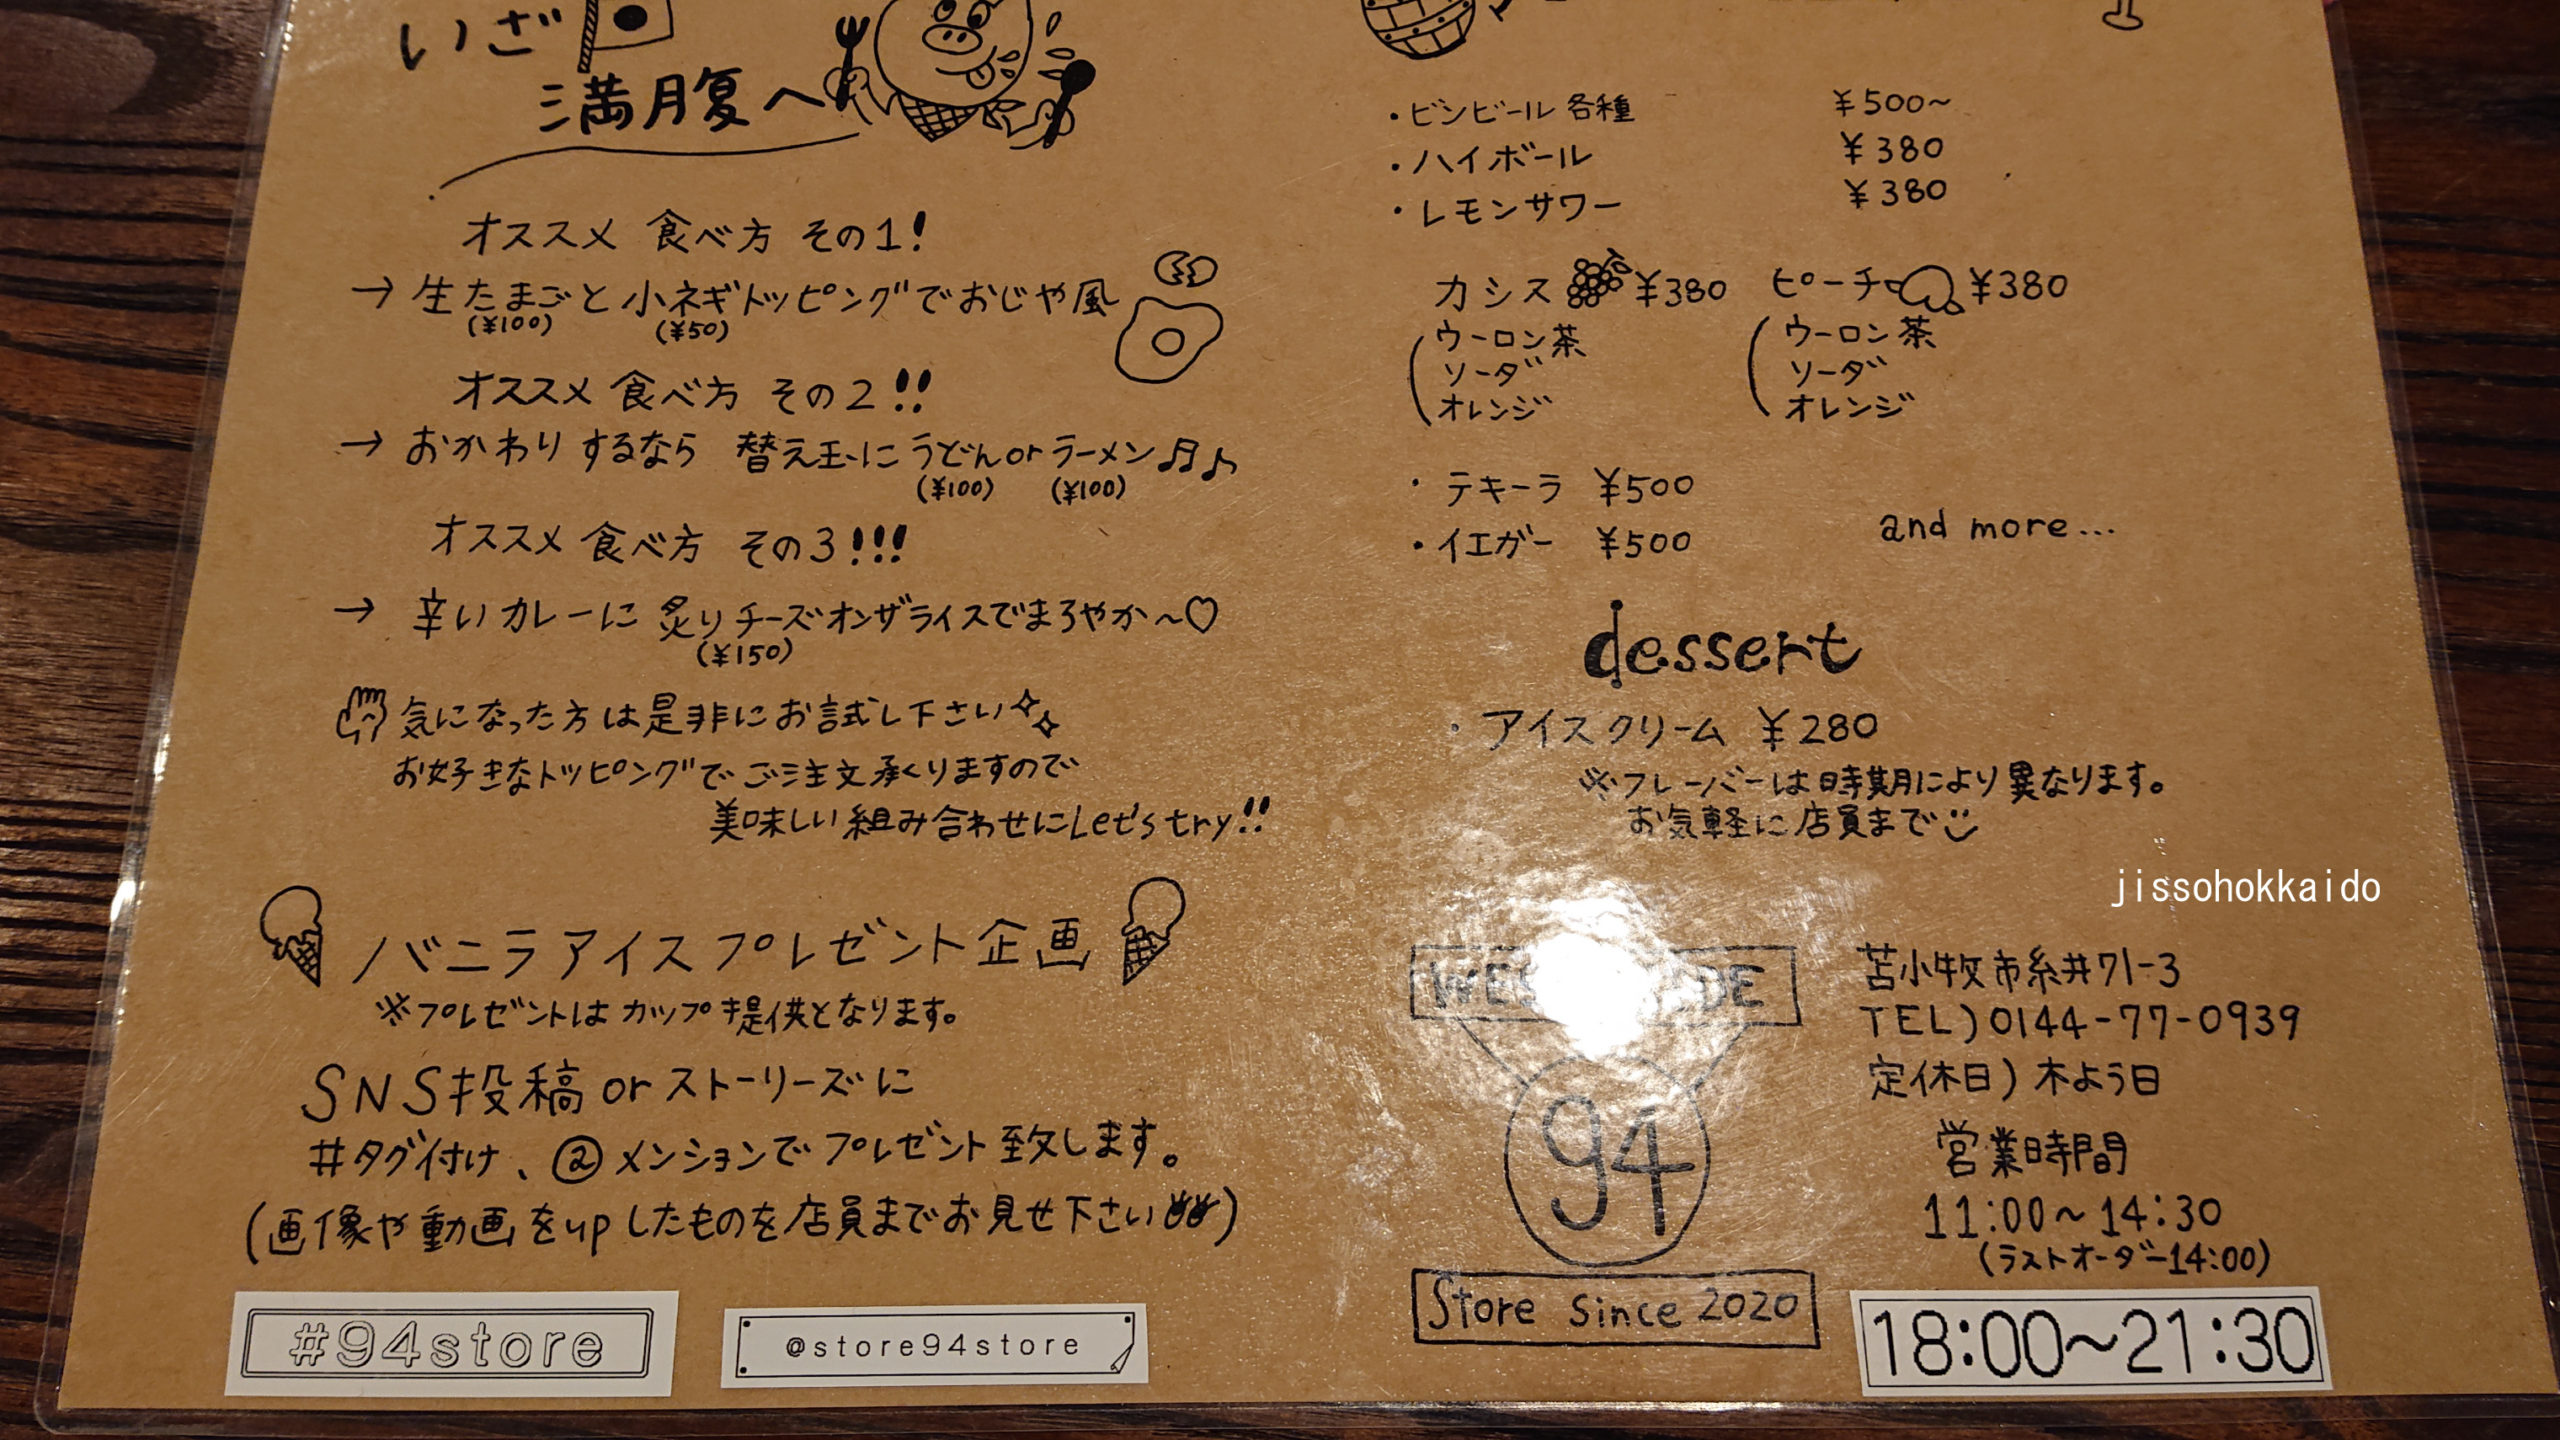 いざ
満腹へ
オススメ 食べ方 その1!
→ 生たまごと小ネギトッピングでおじや風
(¥100) (¥50)
オススメ 食べ方 その2!!
→ おかわりするなら 替え玉にうどんorラーメン♬♪
(¥100) (¥100)
オススメ 食べ方 その3!!!
→ 辛いカレーに 炙りチーズオンザライスでまろやか〜♡
(¥150)
気になった方は是非にお試し下さい
お好きなトッピングでご注文承くりますので
美味しい組み合わせにLet's try!!
バニラアイスプレゼント企画
※プレゼントはカップ提供となります。
SNS投稿orストーリーズに
#タグ付け、@メンションでプレゼント致します。
(画像や動画をupしたものを店員までお見せ下さい)
#94store
@store94store
・ビンビール各種 ¥500〜
・ハイボール ¥380
・レモンサワー ¥380
カシス ¥380
ウーロン茶
ソーダ
オレンジ
ピーチ ¥380
ウーロン茶
ソーダ
オレンジ
・テキーラ ¥500
・イエガー ¥500
and more...
dessert
・アイスクリーム ¥280
※フレーバーは時期により異なります。
お気軽に店員まで
jissohokkaido
94
Store since 2020
苫小牧市糸井71-3
TEL)0144-77-0939
定休日)木よう日
営業時間
11:00〜14:30
(ラストオーダー14:00)
18:00〜21:30